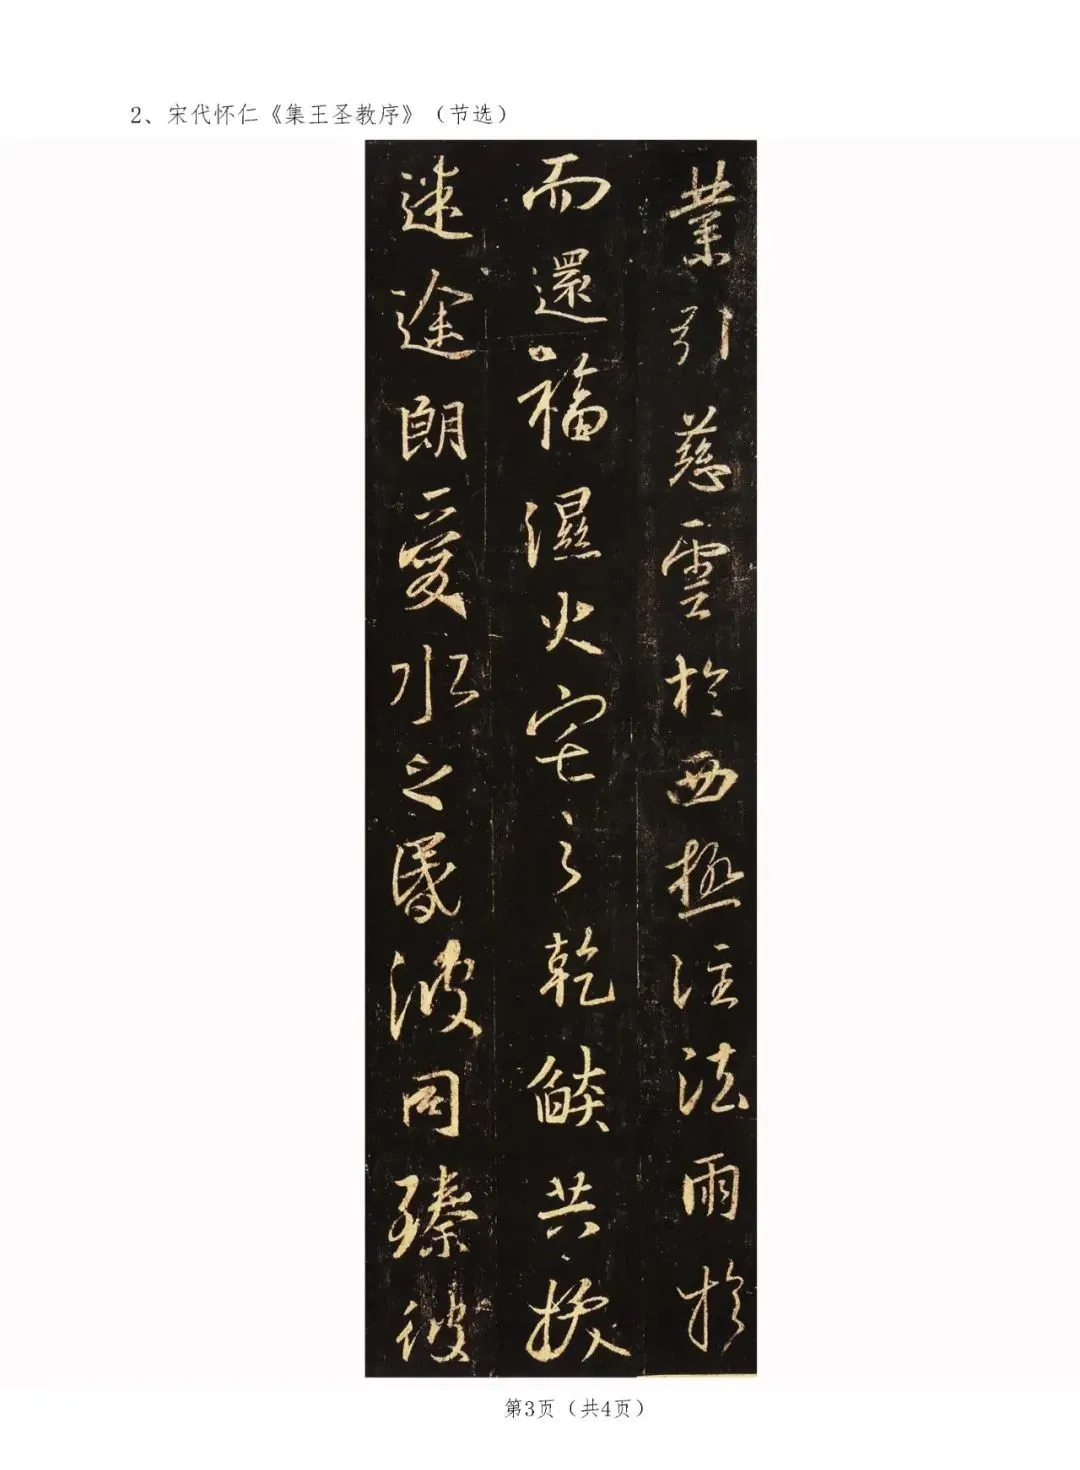 2、宋代怀仁《集王圣教序》（节选）
業引慈雲於西極注法雨於
而還福濕火宅之乾燄共拔
迷途朗愛水之昬波同臻彼
第3页（共4页）